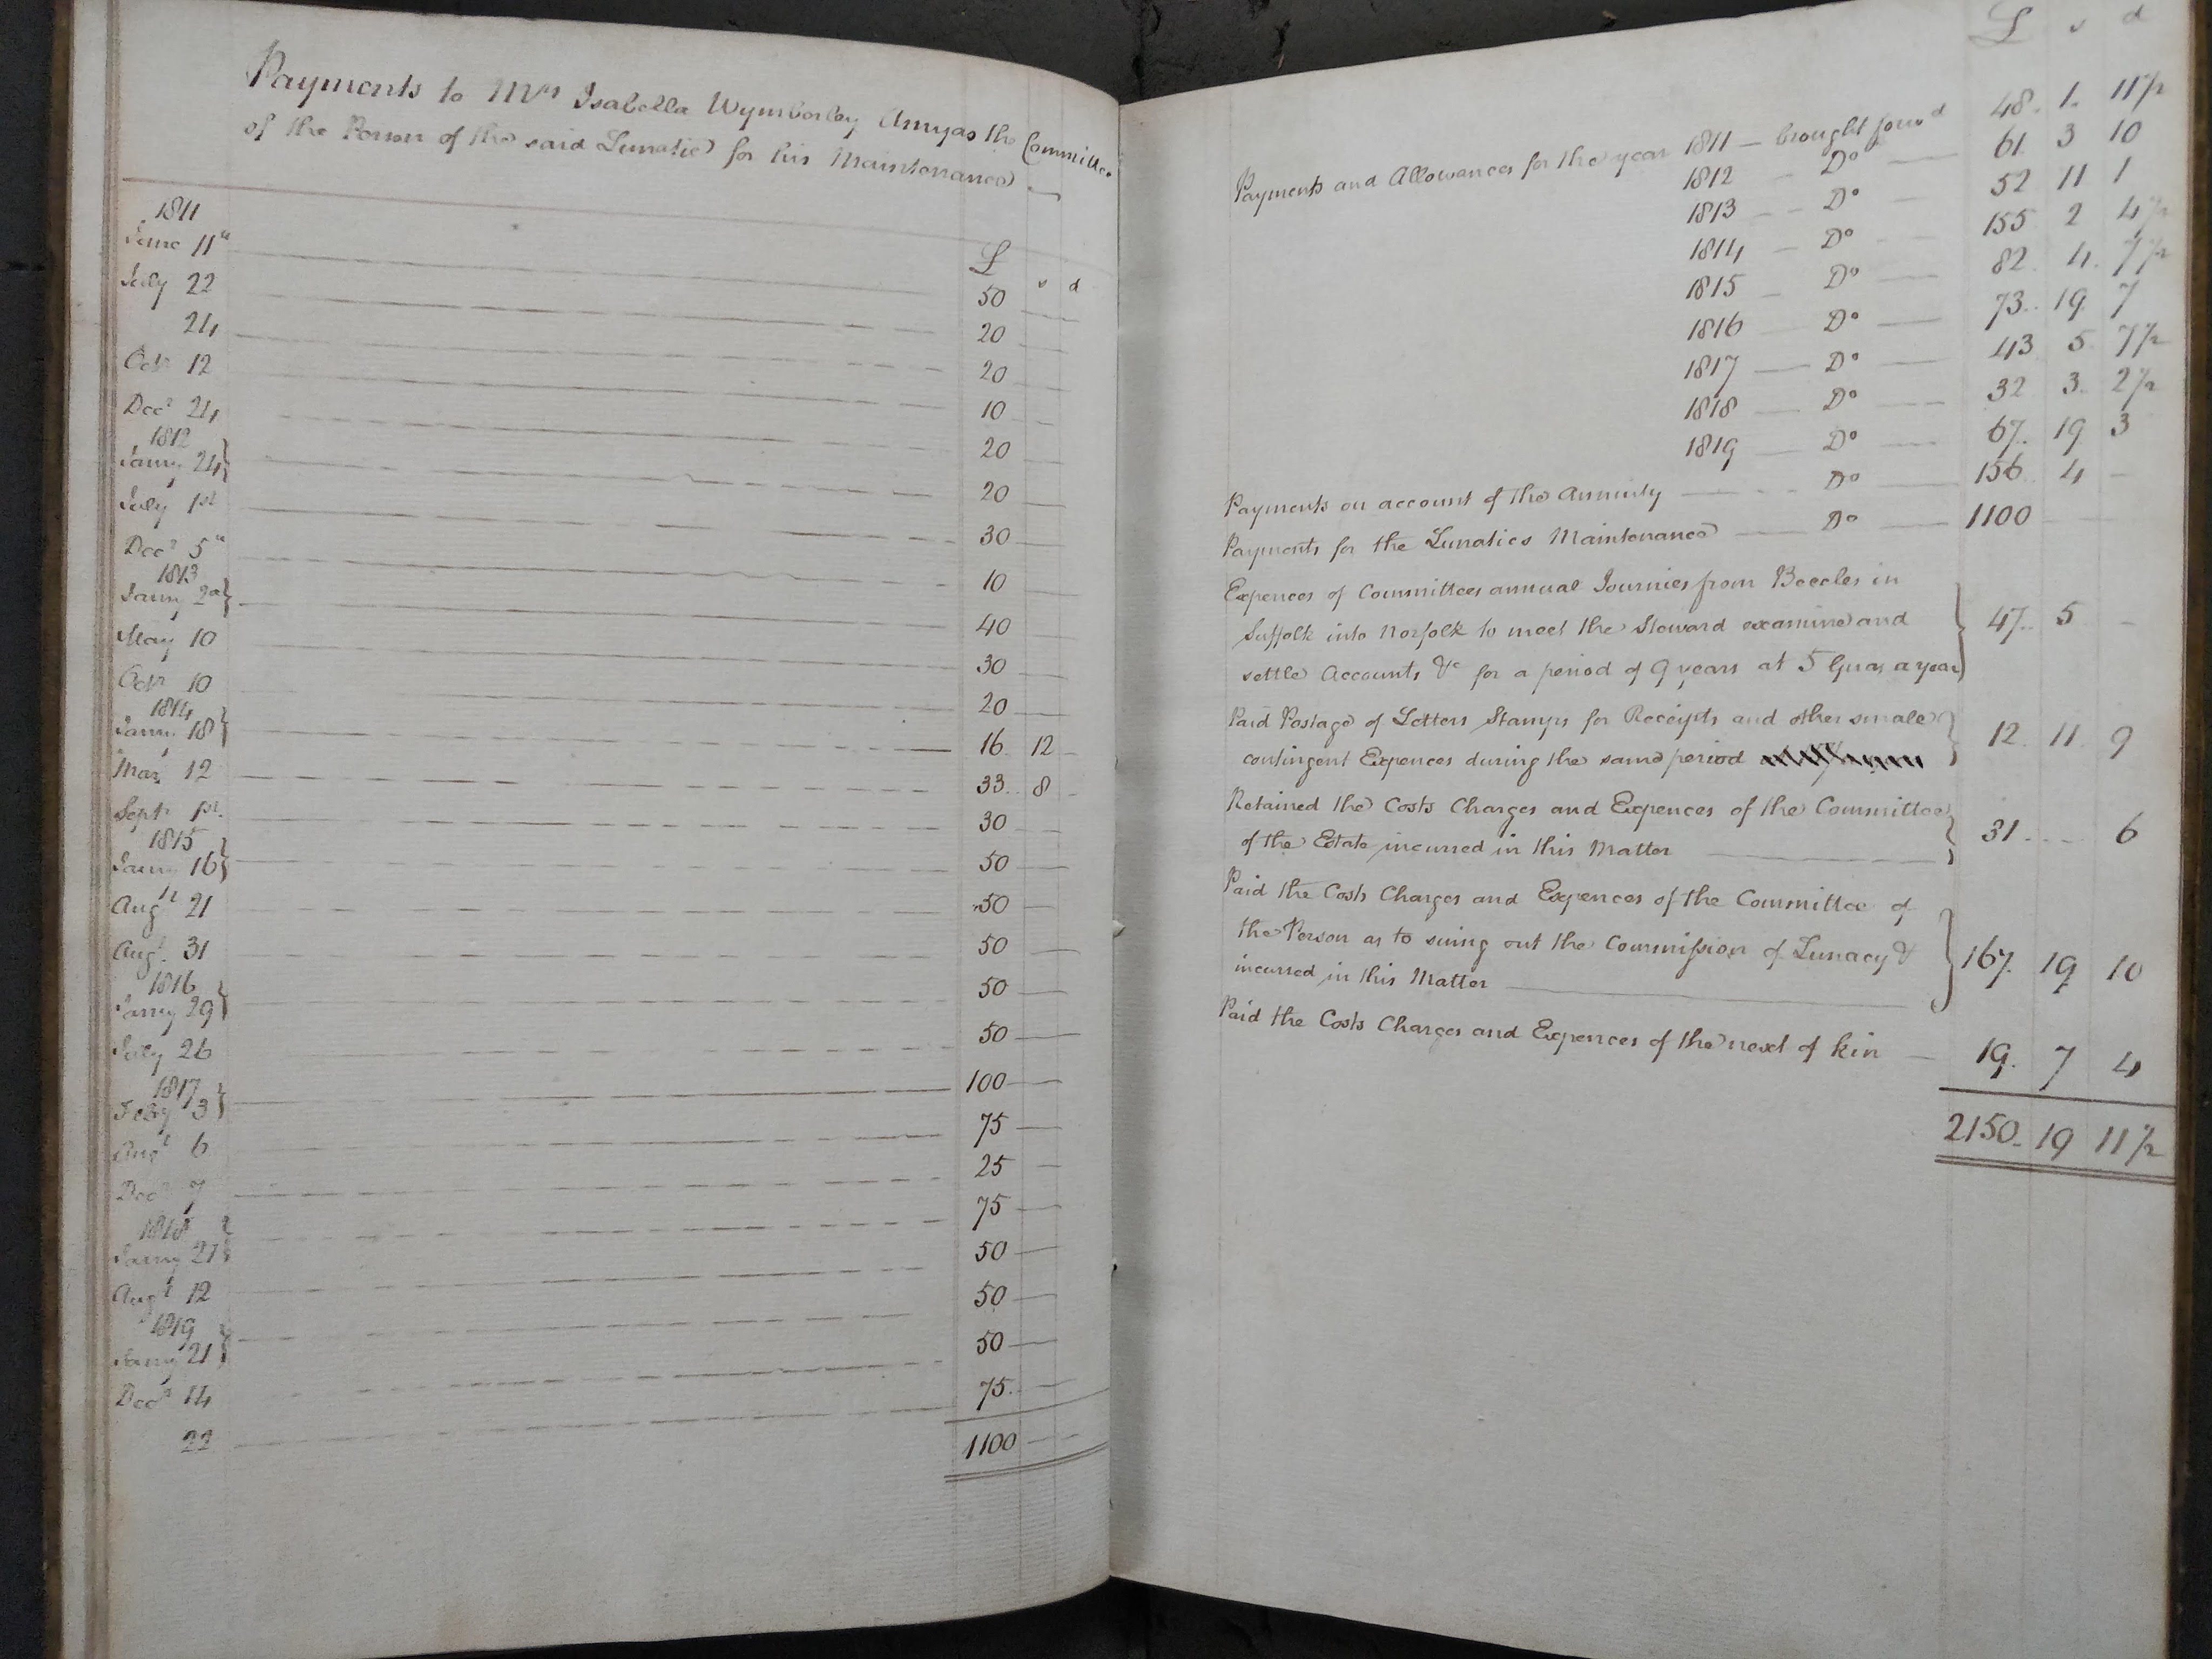 Payments to Mrs Isabella Wymberley Amyas the Committee
of the Person of the said Lunatic for his Maintenance
£ s d
1811
June 11th 50
July 22 20
24 20
Octr 12 10
Decr 24 20
1812
Jany 24 20
July 1st 30
Decr 5th 10
1813
Jany 2d 40
May 10 30
Octr 10 20
1814
Jany 18 16 12
Mar 12 33 8
Septr 1st 30
1815
Jany 16 50
Augt 21 50
Augt 31 50
1816
Jany 29 50
July 26 50
1817
Feby 3 100
Augt 6 75
Decr 7 25
1818 75
Jany 21 50
Augt 12 50
1819
Jany 21 50
Decr 14 75
22 1100
£ s d
Payments and Allowances for the year 1811 — brought forwd 48 1 11½
1812 Do 61 3 10
1813 Do 52 11 1
1814 Do 155 2 4½
1815 Do 82 4 7½
1816 Do 73 19 7
1817 Do 43 5 7½
1818 Do 32 3 2½
1819 Do 67 19 3
Payments on account of the Annuity Do 156 4 –
Payments for the Lunatics Maintenance Do 1100
Expences of Committees annual Journies from Beccles in
Suffolk into Norfolk to meet the Steward examine and
settle Accounts &c for a period of 9 years at 5 Guas a year 47 5 –
Paid Postage of Letters Stamps for Receipts and other small
contingent Expences during the same period 12 11 9
Retained the Costs Charges and Expences of the Committee
of the Estate incurred in this Matter 31 – 6
Paid the Costs Charges and Expences of the Committee of
the Person as to suing out the Commission of Lunacy &
incurred in this Matter 167 19 10
Paid the Costs Charges and Expences of the next of kin 19 7 4
2150 19 11½